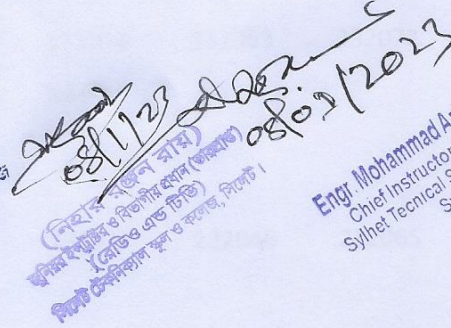 08/1/23
08/01/2023
(নিহার রঞ্জন রায়)
জুনিয়র ইন্সট্রাক্টর ও বিভাগীয় প্রধান (ভারপ্রাপ্ত)
(রেডিও এন্ড টিভি)
সিলেট টেকনিক্যাল স্কুল ও কলেজ, সিলেট।
Engr. Mohammad A
Chief Instructor
Sylhet Tecnical S
S